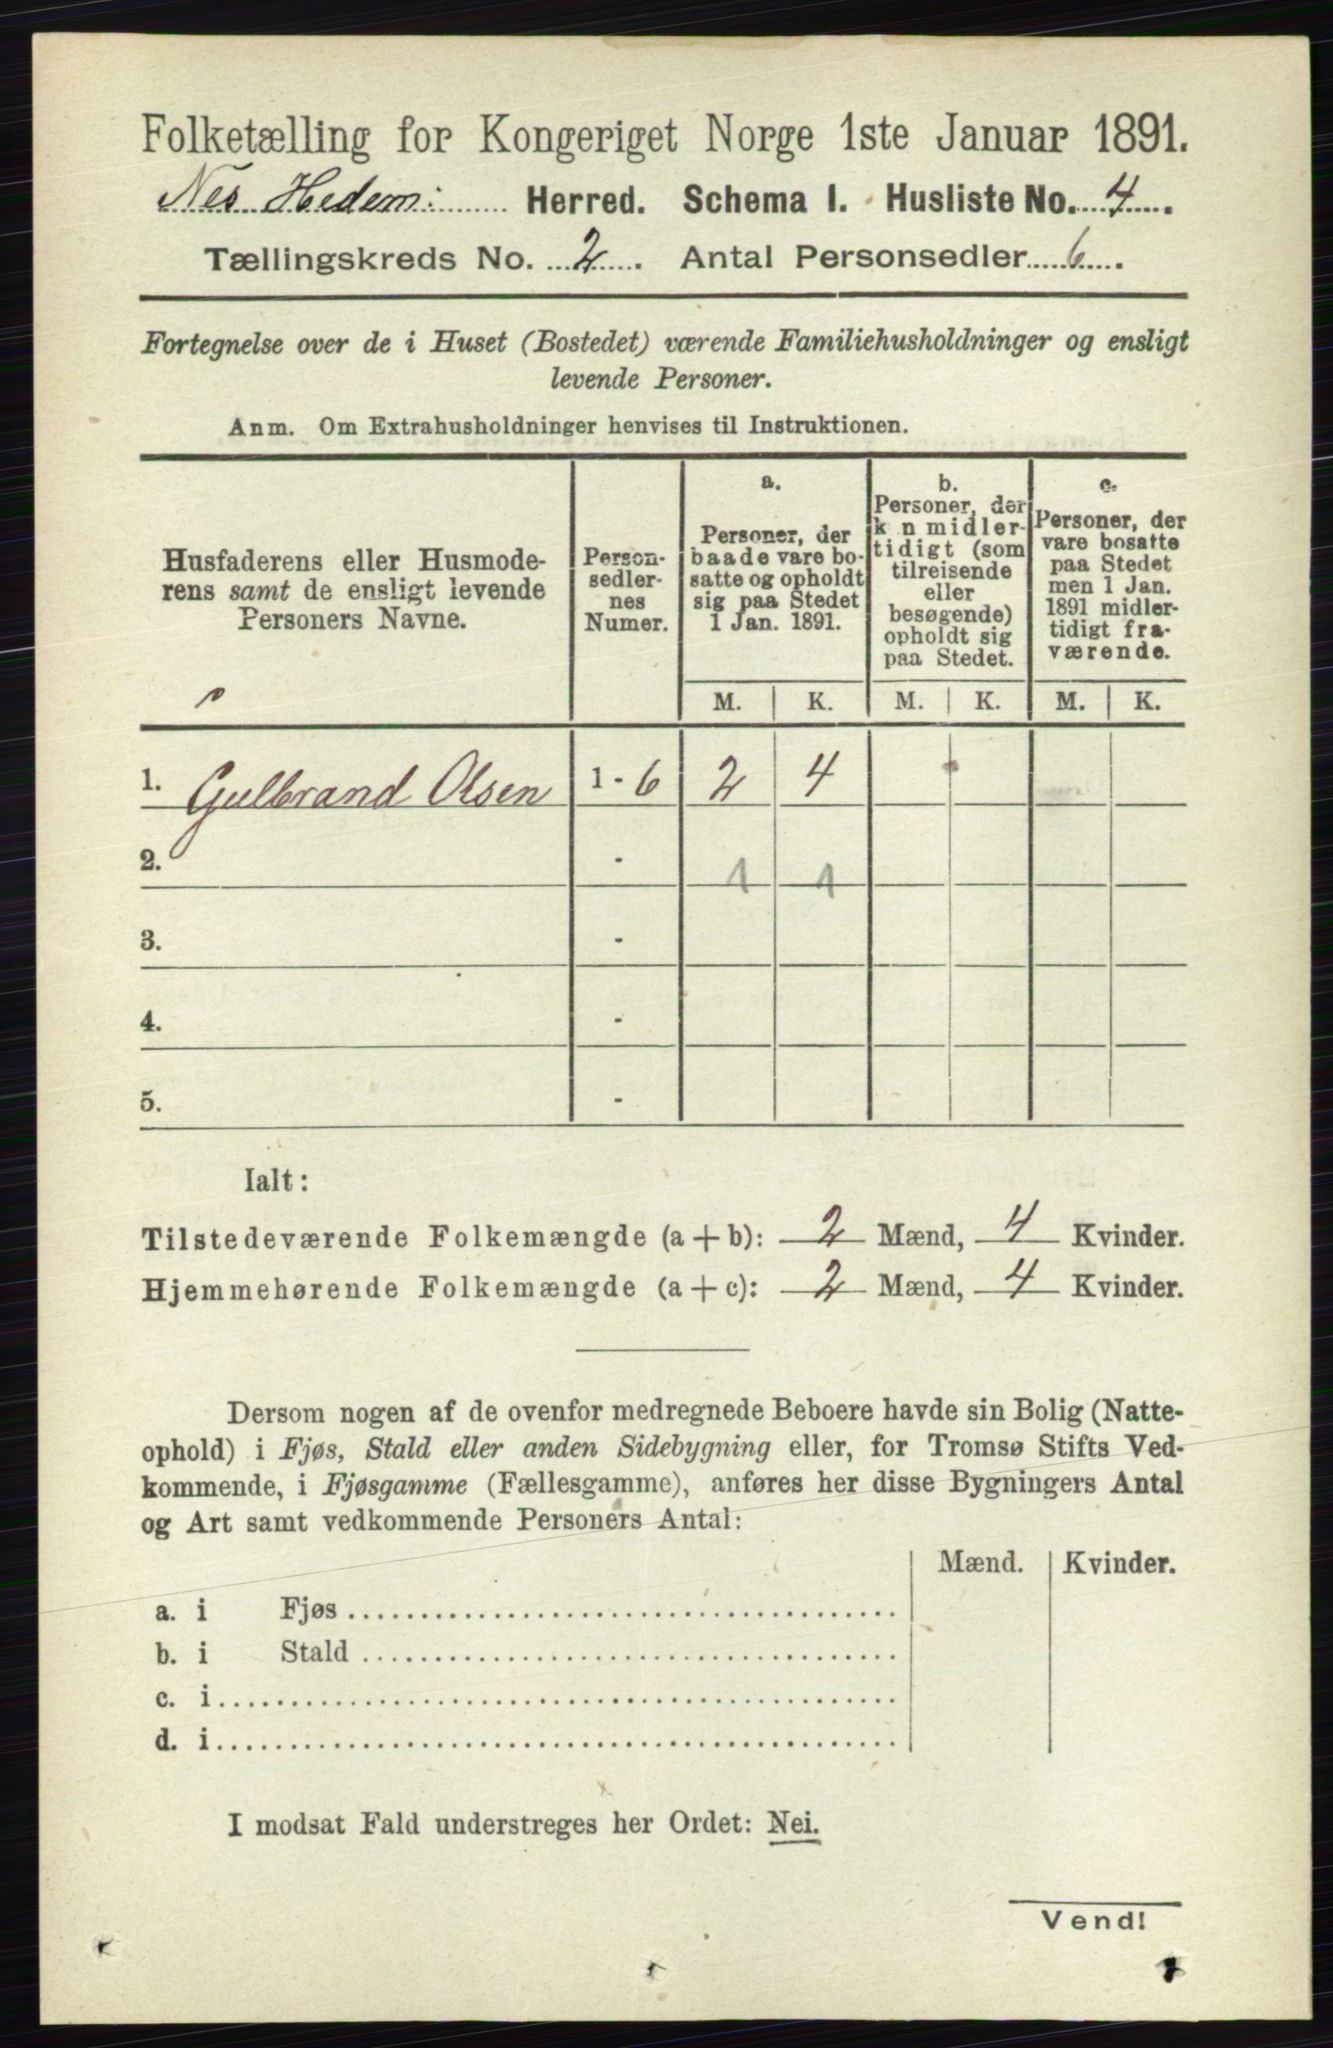 Folketælling for Kongeriget Norge 1ste Januar 1891.
Nes Hedem: Herred. Schema I. Husliste No. 4.
Tællingskreds No. 2. Antal Personsedler 6.
Fortegnelse over de i Huset (Bostedet) værende Familiehusholdninger og ensligt
levende Personer.
Anm. Om Extrahusholdninger henvises til Instruktionen.
Husfaderens eller Husmode-
rens samt de ensligt levende
Personers Navne.
Person-
sedler-
nes
Numer.
a.
Personer, der
baade vare bo-
satte og opholdt
sig paa Stedet
1 Jan. 1891.
b.
Personer, der
k n midler-
tidigt (som
tilreisende
eller
besøgende)
opholdt sig
paa Stedet.
c.
Personer, der
vare bosatte
paa Stedet
men 1 Jan.
1891 midler-
tidigt fra-
værende.
M. K. M. K. M. K.
1. Gulbrand Olsen 1 - 6 2 4
2. - 1 1
3. -
4. -
5. -
Ialt:
Tilstedeværende Folkemængde (a + b): 2 Mænd, 4 Kvinder.
Hjemmehørende Folkemængde (a + c): 2 Mænd, 4 Kvinder.
Dersom nogen af de ovenfor medregnede Beboere havde sin Bolig (Natte-
ophold) i Fjøs, Stald eller anden Sidebygning eller, for Tromsø Stifts Ved-
kommende, i Fjøsgamme (Fællesgamme), anføres her disse Bygningers Antal
og Art samt vedkommende Personers Antal:
Mænd. Kvinder.
a. i Fjøs
b. i Stald
c. i
d. i
I modsat Fald understreges her Ordet: Nei.
Vend!